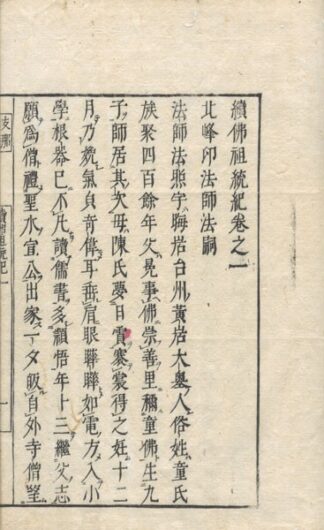 續佛祖統紀卷之一
北峰印法師法嗣
法師法照字晦岩台州黃岩大墓人俗姓童氏
族聚四百餘年父晃事佛崇善里稱童佛生九
子師居其次母陳氏夢日賁褰裳得之妊十二
月乃娩氣㒵奇偉耳垂眉眼聯聯如電方入小
學根器已不凡讀儒書多穎悟年十三繼父志
願為僧禮聖水宜公出家一夕飯自外寺僧望
支那
續佛祖統紀
一